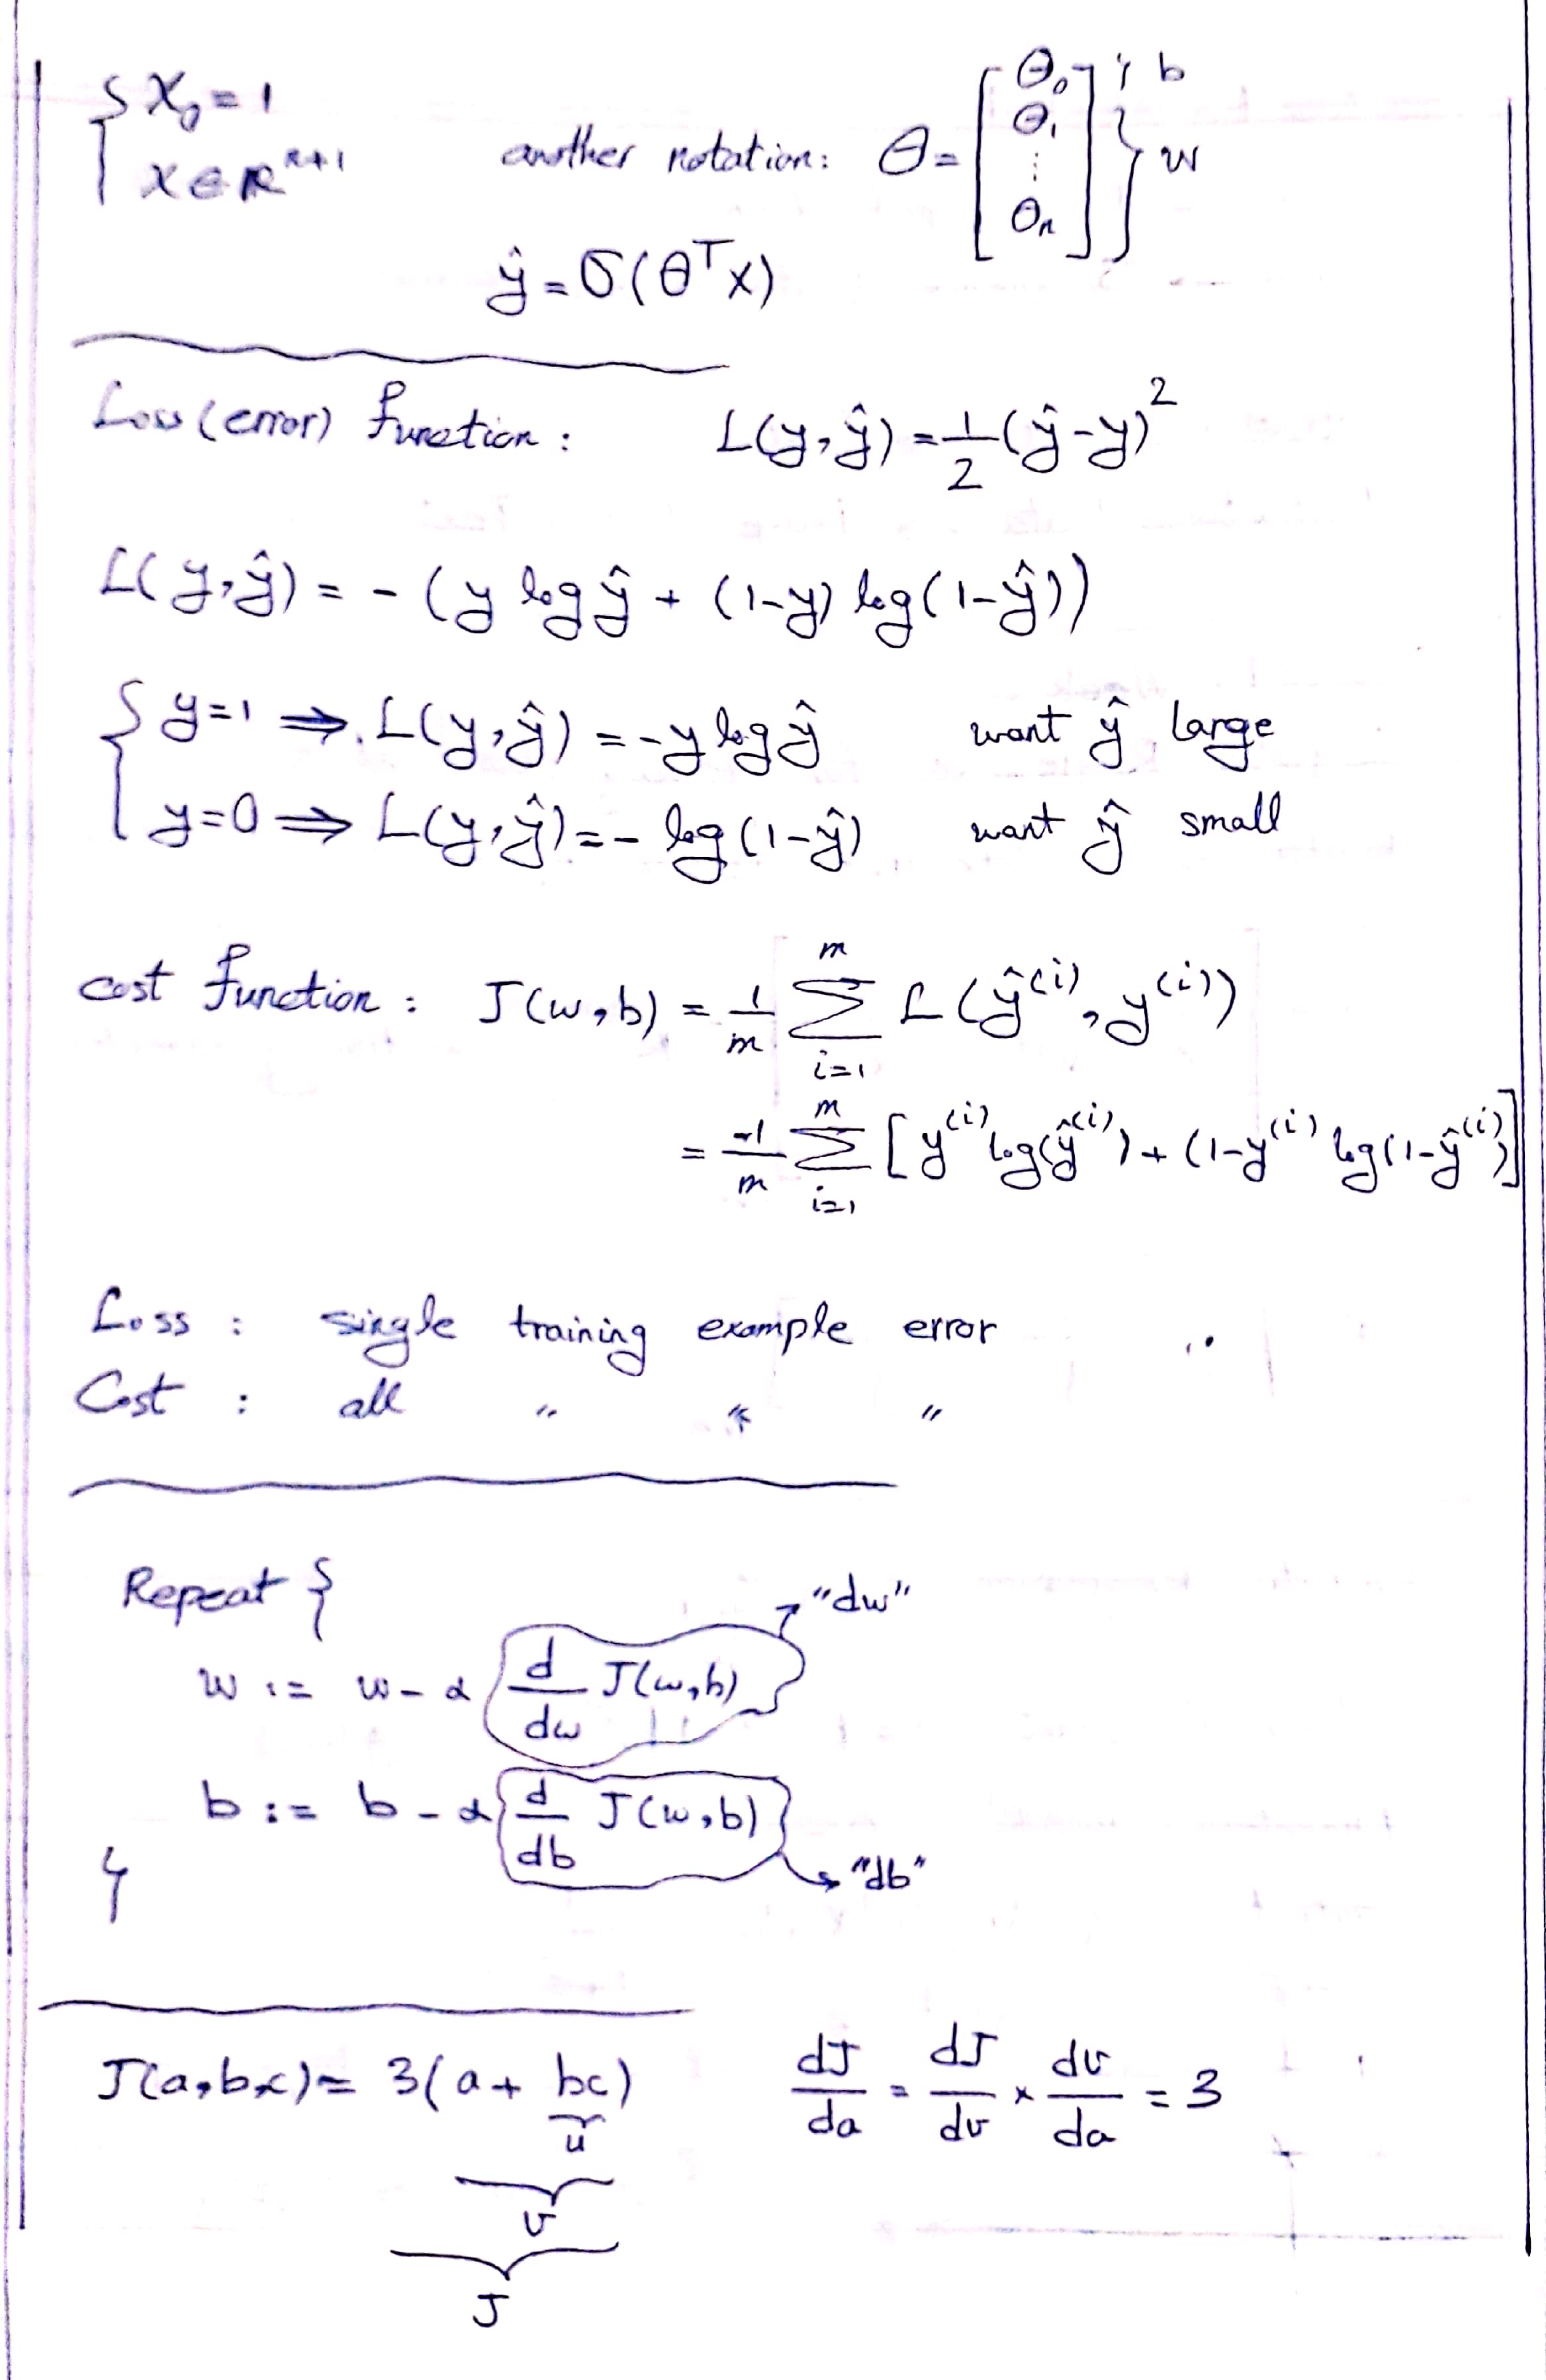 { x₀ = 1
x ∈ ℝⁿ⁺¹ another notation: θ = [θ₀ θ₁ ⋮ θₙ] } b } w
ŷ = σ(θᵀx)
Loss (error) function : L(y, ŷ) = 1/2 (ŷ - y)²
L(y, ŷ) = - (y log ŷ + (1-y) log(1-ŷ))
{ y=1 ⇒ L(y, ŷ) = -y log ŷ want ŷ large
y=0 ⇒ L(y, ŷ) = - log(1-ŷ) want ŷ small
cost function : J(w, b) = 1/m Σᵢ₌₁ᵐ L(ŷ⁽ⁱ⁾, y⁽ⁱ⁾)
= -1/m Σᵢ₌₁ᵐ [y⁽ⁱ⁾ log(ŷ⁽ⁱ⁾) + (1-y⁽ⁱ⁾ log(1-ŷ⁽ⁱ⁾)]
Loss : single training example error
Cost : all " " "
Repeat { "dw"
w := w - α d/dw J(w, b)
b := b - α d/db J(w, b)
} "db"
J(a, b, c) = 3(a + bc) dJ/da = dJ/dv × dv/da = 3
u
v
J